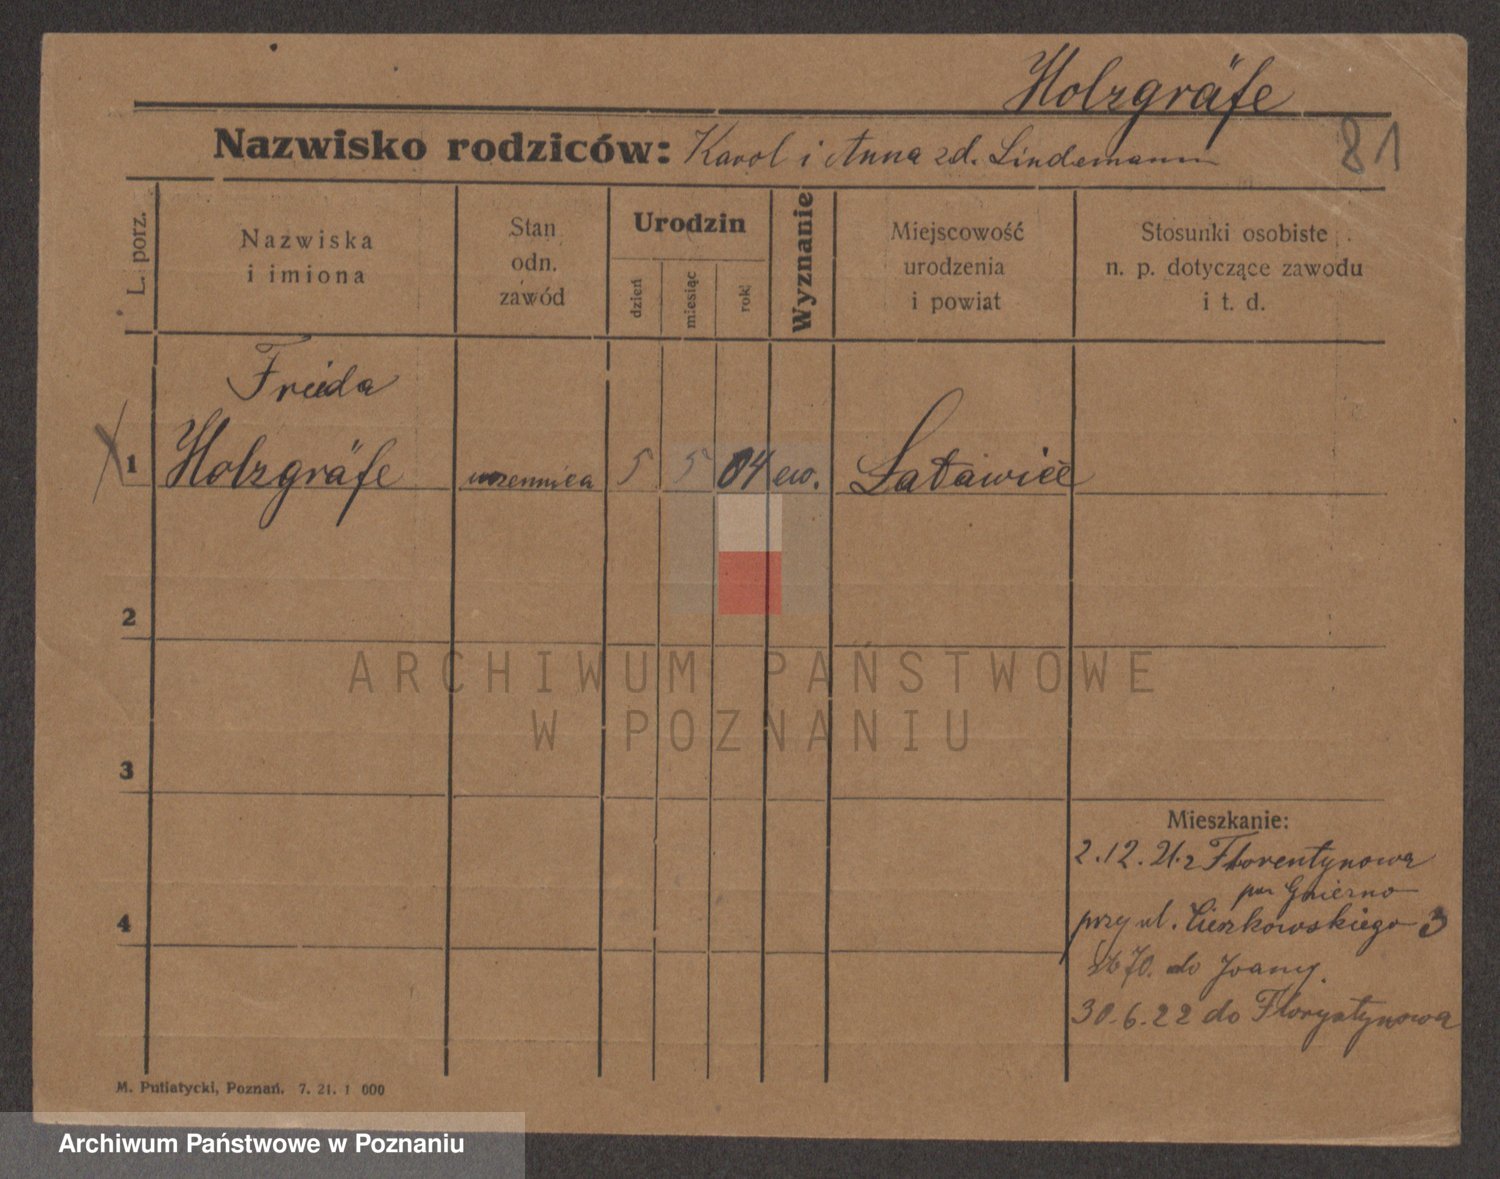 Holzgräfe
Nazwisko rodziców: Karol i Anna zd. Lindemann
81
L. porz.
Nazwiska
i imiona
Stan
odn.
zawód
Urodzin
dzień
miesiąc
rok
Wyznanie
Miejscowość
urodzenia
i powiat
Stosunki osobiste
n. p. dotyczące zawodu
i t. d.
Frieda
1 Holzgräfe uczennica 5 5 04 ew. Latawice
2
3
4
Mieszkanie:
2.12.21. z Florentynowa
pow Gniezno
przy ul. Cieszkowskiego 3
do
30.6.22 do Florystynowa
M. Putiatycki, Poznań. 7. 21. 1 000
ARCHIWUM PAŃSTWOWE
W POZNANIU
Archiwum Państwowe w Poznaniu